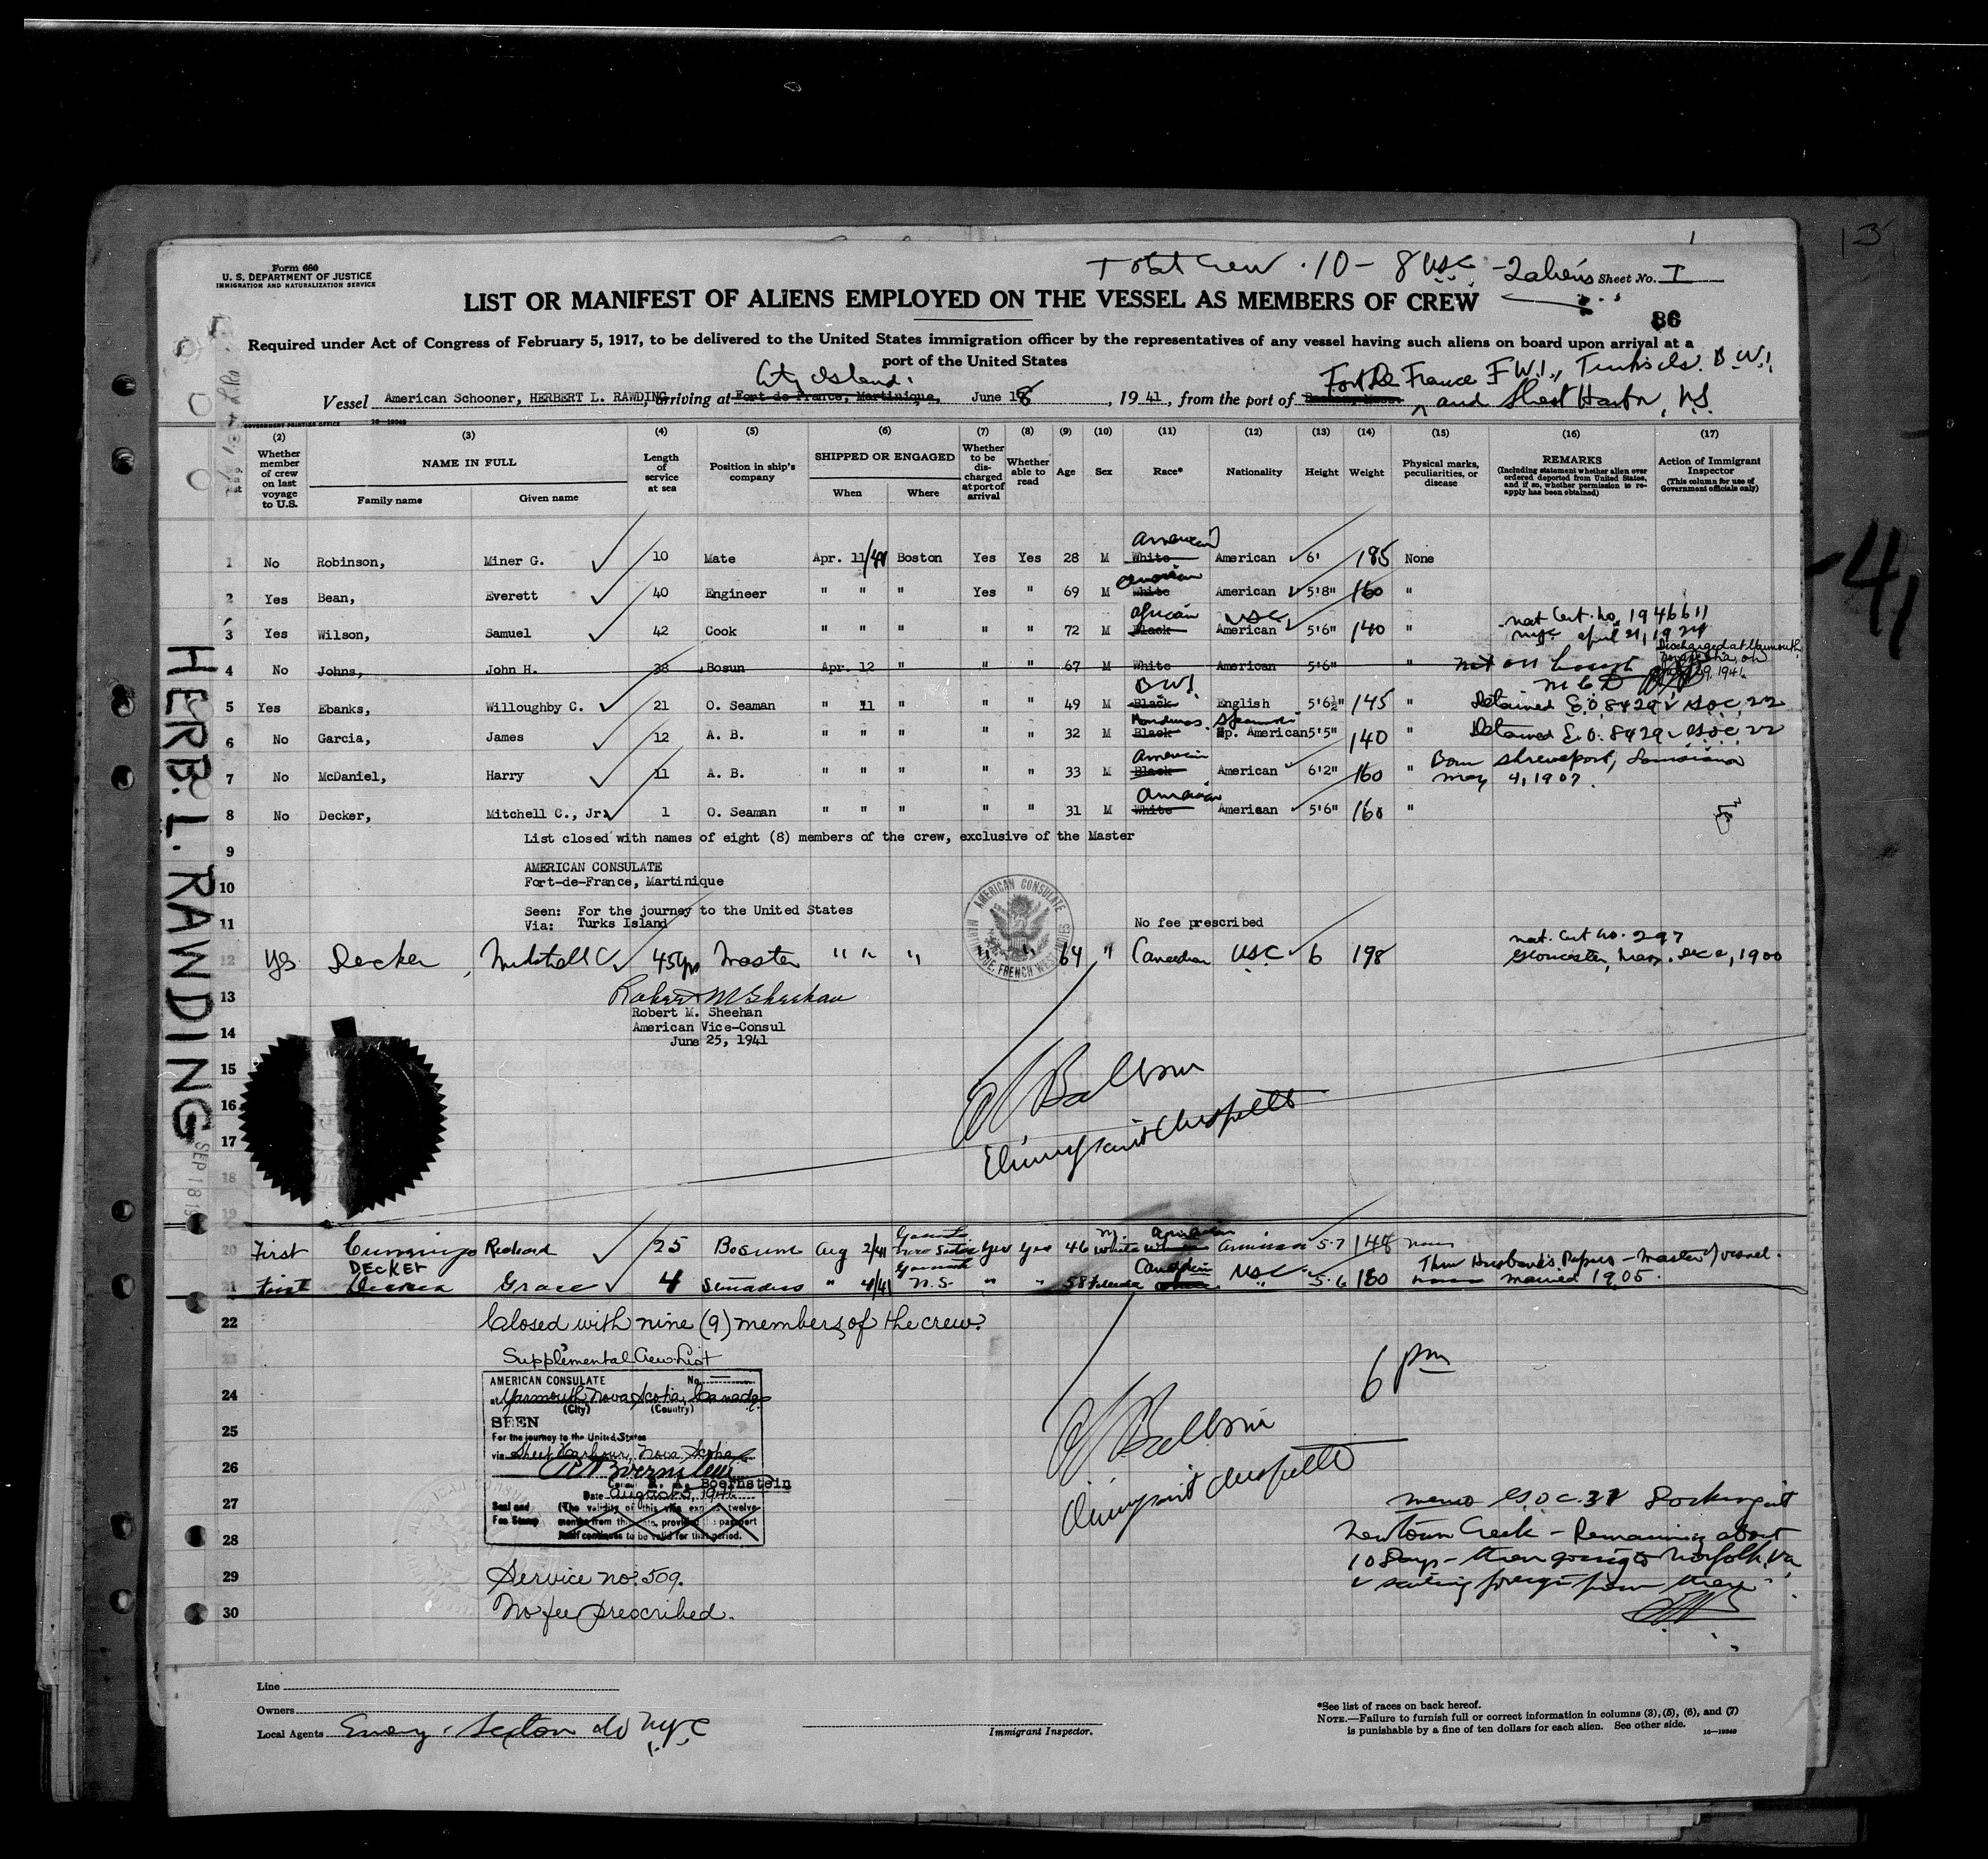 Form 680
U. S. DEPARTMENT OF JUSTICE
IMMIGRATION AND NATURALIZATION SERVICE
Total Crew . 10 - 8 USC - 2 aliens Sheet No. I
LIST OR MANIFEST OF ALIENS EMPLOYED ON THE VESSEL AS MEMBERS OF CREW
86
Required under Act of Congress of February 5, 1917, to be delivered to the United States immigration officer by the representatives of any vessel having such aliens on board upon arrival at a
port of the United States
City Island. Fort De France F.W.I., Turks Is. B.W.I.
Vessel American Schooner, HERBERT L. RAWDING, arriving at Fort de France, Martinique, June 18, 1941, from the port of and Sheet Harbor, N.S.
GOVERNMENT PRINTING OFFICE 16-19349
(2) (3) (4) (5) (6) (7) (8) (9) (10) (11) (12) (13) (14) (15) (16) (17)
Whether member of crew on last voyage to U.S.
NAME IN FULL
Family name Given name
Length of service at sea
Position in ship's company
SHIPPED OR ENGAGED
When Where
Whether to be discharged at port of arrival
Whether able to read
Age Sex Race* Nationality Height Weight
Physical marks, peculiarities, or disease
REMARKS
(Including statement whether alien ever ordered deported from United States, and if so, whether permission to re-apply has been obtained)
Action of Immigrant Inspector
(This column for use of Government officials only)
American
1 No Robinson, Miner G. 10 Mate Apr. 11/41 Boston Yes Yes 28 M White American 6' 185 None
American
2 Yes Bean, Everett 40 Engineer " " " Yes " 69 M White American 5'8" 160 "
African USC nat Cert. no. 1946611
3 Yes Wilson, Samuel 42 Cook " " " " " 72 M Black American 5'6" 140 " nyc april 21, 1924
Discharged at Yarmouth,
4 No Johns, John H. 38 Bosun Apr. 12 " " " 67 M White American 5'6" " not on board Nova Scotia, on
B.W.I. 1941
5 Yes Ebanks, Willoughby C. 21 O. Seaman " 11 " " " 49 M Black English 5'6½" 145 " Detained E.O 8429 v GSOC 22
Honduras. Spanish
6 No Garcia, James 12 A. B. " " " " " 32 M Black Sp. American 5'5" 140 " Detained E.O. 8429 v GSOC 22
American Born Shreveport, Louisiana
7 No McDaniel, Harry 11 A. B. " " " " " 33 M Black American 6'2" 160 " May 4, 1907.
American
8 No Decker, Mitchell C., Jr. 1 O. Seaman " " " " " 31 M White American 5'6" 160 "
List closed with names of eight (8) members of the crew, exclusive of the Master
9
AMERICAN CONSULATE
10 Fort-de-France, Martinique
Seen: For the journey to the United States
11 Via: Turks Island No fee prescribed
AMERICAN CONSULATE
MARTINIQUE, FRENCH WEST INDIES
nat. Cert no. 297
12 Yes Decker, Mitchell C 45 yrs Master " " " " " 64 " Canadian USC 6 198 Gloucester, Mass. Dec 2, 1900
13 Robert M Sheehan
Robert M. Sheehan
14 American Vice-Consul
June 25, 1941
15
16
17
18
19
Balbrni
Immigrant Inspector
HERB. L. RAWDING
SEP 18 19
41
American
20 First Cummings Richard 25 Bosun Aug 2/41 Nova Scotia Yes Yes 46 White American 5-7 148 none
DECKER Yarmouth Canadian Thru Husband's Papers - Master of vessel.
21 First Decker Grace 4 Stewardess " 4/41 N.S. " " 58 Female USC 5-6 180 married 1905.
22 Closed with nine (9) members of the crew.
23 Supplemental Crew List
AMERICAN CONSULATE No.
24 at Yarmouth, Nova Scotia, Canada
(City) (Country)
25 SEEN
For the journey to the United States
via Sheet Harbour, Nova Scotia
26
Boernstein
27 Date August 5, 1941
Seal and Fee Stamp (The validity of this visa expires twelve
months from this date, provided the passport
28 itself continues to be valid for that period.
6 pm
Balbrni
Immigrant Inspector
memo GSOC 32 Docking at
Newtown Creek - Remaining about
10 days - then going to Norfolk, Va
& sailing foreign from there
29 Service no. 509.
30 No fee prescribed.
Line
Owners
Local Agents Emery Sexton NYC
Immigrant Inspector.
*See list of races on back hereof.
NOTE.—Failure to furnish full or correct information in columns (3), (5), (6), and (7)
is punishable by a fine of ten dollars for each alien. See other side. 16-19349